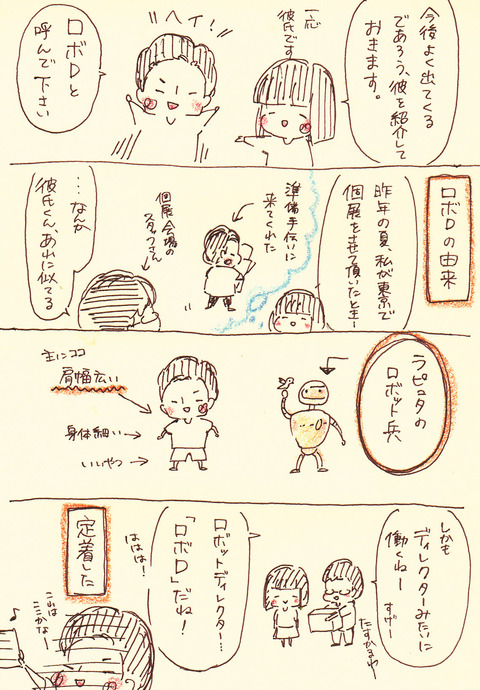 今後よく出てくる
であろう、彼を紹介して
おきます。
一応
彼氏です
ヘイ!
ロボDと
呼んで下さい
ロボDの由来
昨年の夏、私が東京で
個展をさせて頂いたとき
準備手伝いに
来てくれた
個展会場の
スタッフさん
…なんか
彼氏くん、あれに似てる
ラピュタの
ロボット兵
主にココ
肩幅広い
身体細い
いいやつ
しかも
ディレクターみたいに
働くねー
すげー
たすかるわー
ロボットディレクター…
「ロボD」だね!
ははは!
定着した
これは
ここかなー